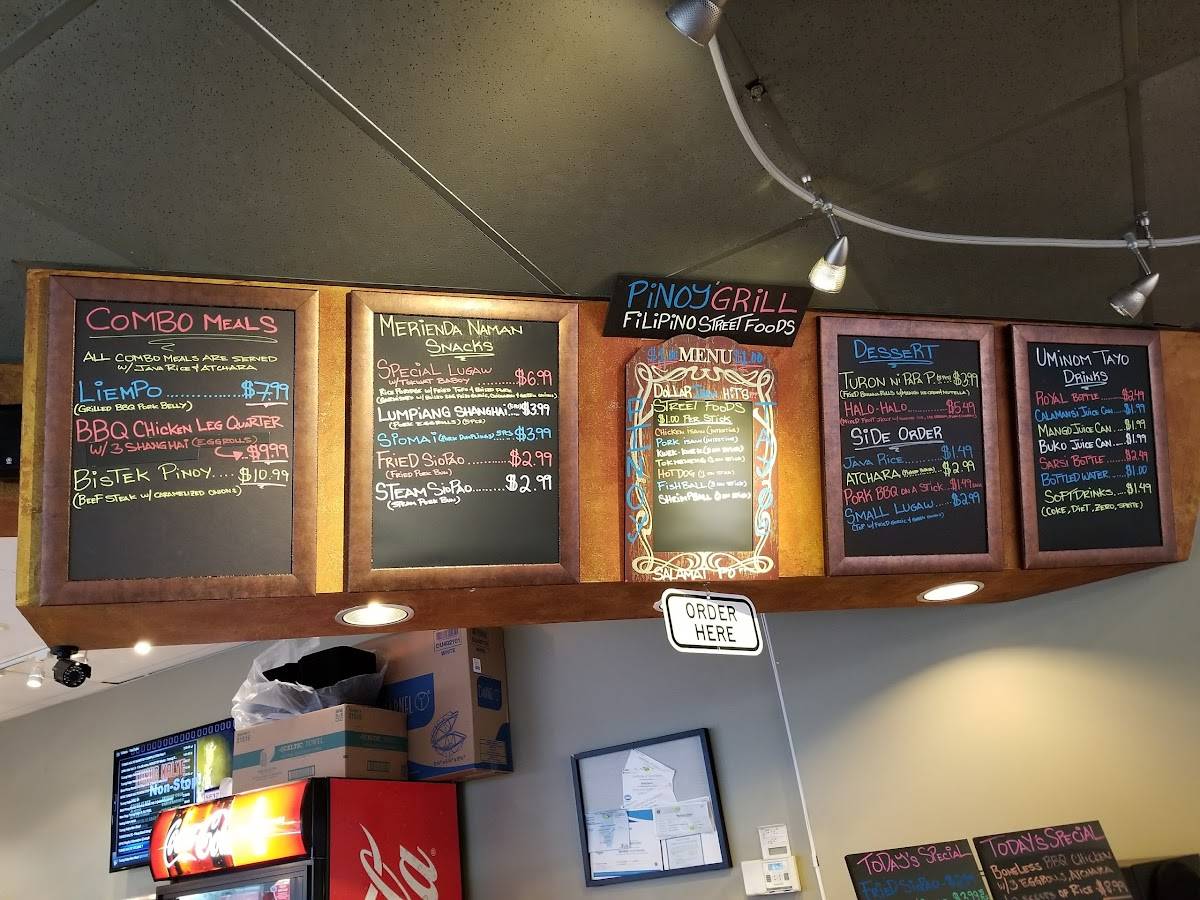 COMBO MEALS
ALL COMBO MEALS ARE SERVED
W/ JAVA RICE & ATCHARA
LIEMPO $7.99
(GRILLED BBQ PORK BELLY)
BBQ CHICKEN LEG QUARTER
W/ 3 SHANGHAI (EGGROLLS)
$9.99
BISTEK PINOY.... $10.99
(BEEF STEAK W/ CARAMELIZED ONIONS)
MERIENDA NAMAN
SNACKS
SPECIAL LUGAW
W/ TOKWAT BABOY ......... $6.99
LUMPIANG SHANGHAI $3.99
(PORK EGGROLLS) (5PCS)
SIOMAI $3.99
FRIED SIOPAO ......... $2.99
(FRIED PORK BUN)
STEAM SIOPAO....... $2.99
(STEAM PORK BUN)
PINOY GRILL
FILIPINO STREET FOODS
MENU $1.00
DOLLAR HITS!!
STREET FOODS
$1.00 PER STICK
CHICKEN ISAW (INTESTINE)
PORK ISAW (INTESTINE)
KWEK-KWEK
TOKNENENG
HOTDOG
FISHBALL
SHRIMPBALL
SALAMAT PO
ORDER
HERE
DESSERT
TURON NI PAPA P. $3.99
HALO-HALO......... $5.49
SIDE ORDER
JAVA RICE......... $1.49
ATCHARA $2.99
PORK BBQ ON A STICK... $1.49
SMALL LUGAW..... $2.99
(TOP W/ FRIED GARLIC & GREEN ONIONS)
UMINOM TAYO
DRINKS
ROYAL BOTTLE ..... $2.49
CALAMANSI JUICE CAN... $1.99
MANGO JUICE CAN.... $1.99
BUKO JUICE CAN.... $1.99
SARSI BOTTLE ..... $2.49
BOTTLED WATER.... $1.00
SOFTDRINKS.... $1.49
(COKE, DIET, ZERO, SPRITE)
Non-Stop
Coca-Cola
CELTIC TOWEL
TODAY'S SPECIAL
FRIED SIOPAO
TODAY'S SPECIAL
BONELESS BBQ CHICKEN
W/ 3 EGGROLLS, ATCHARA
OF RICE $8.99